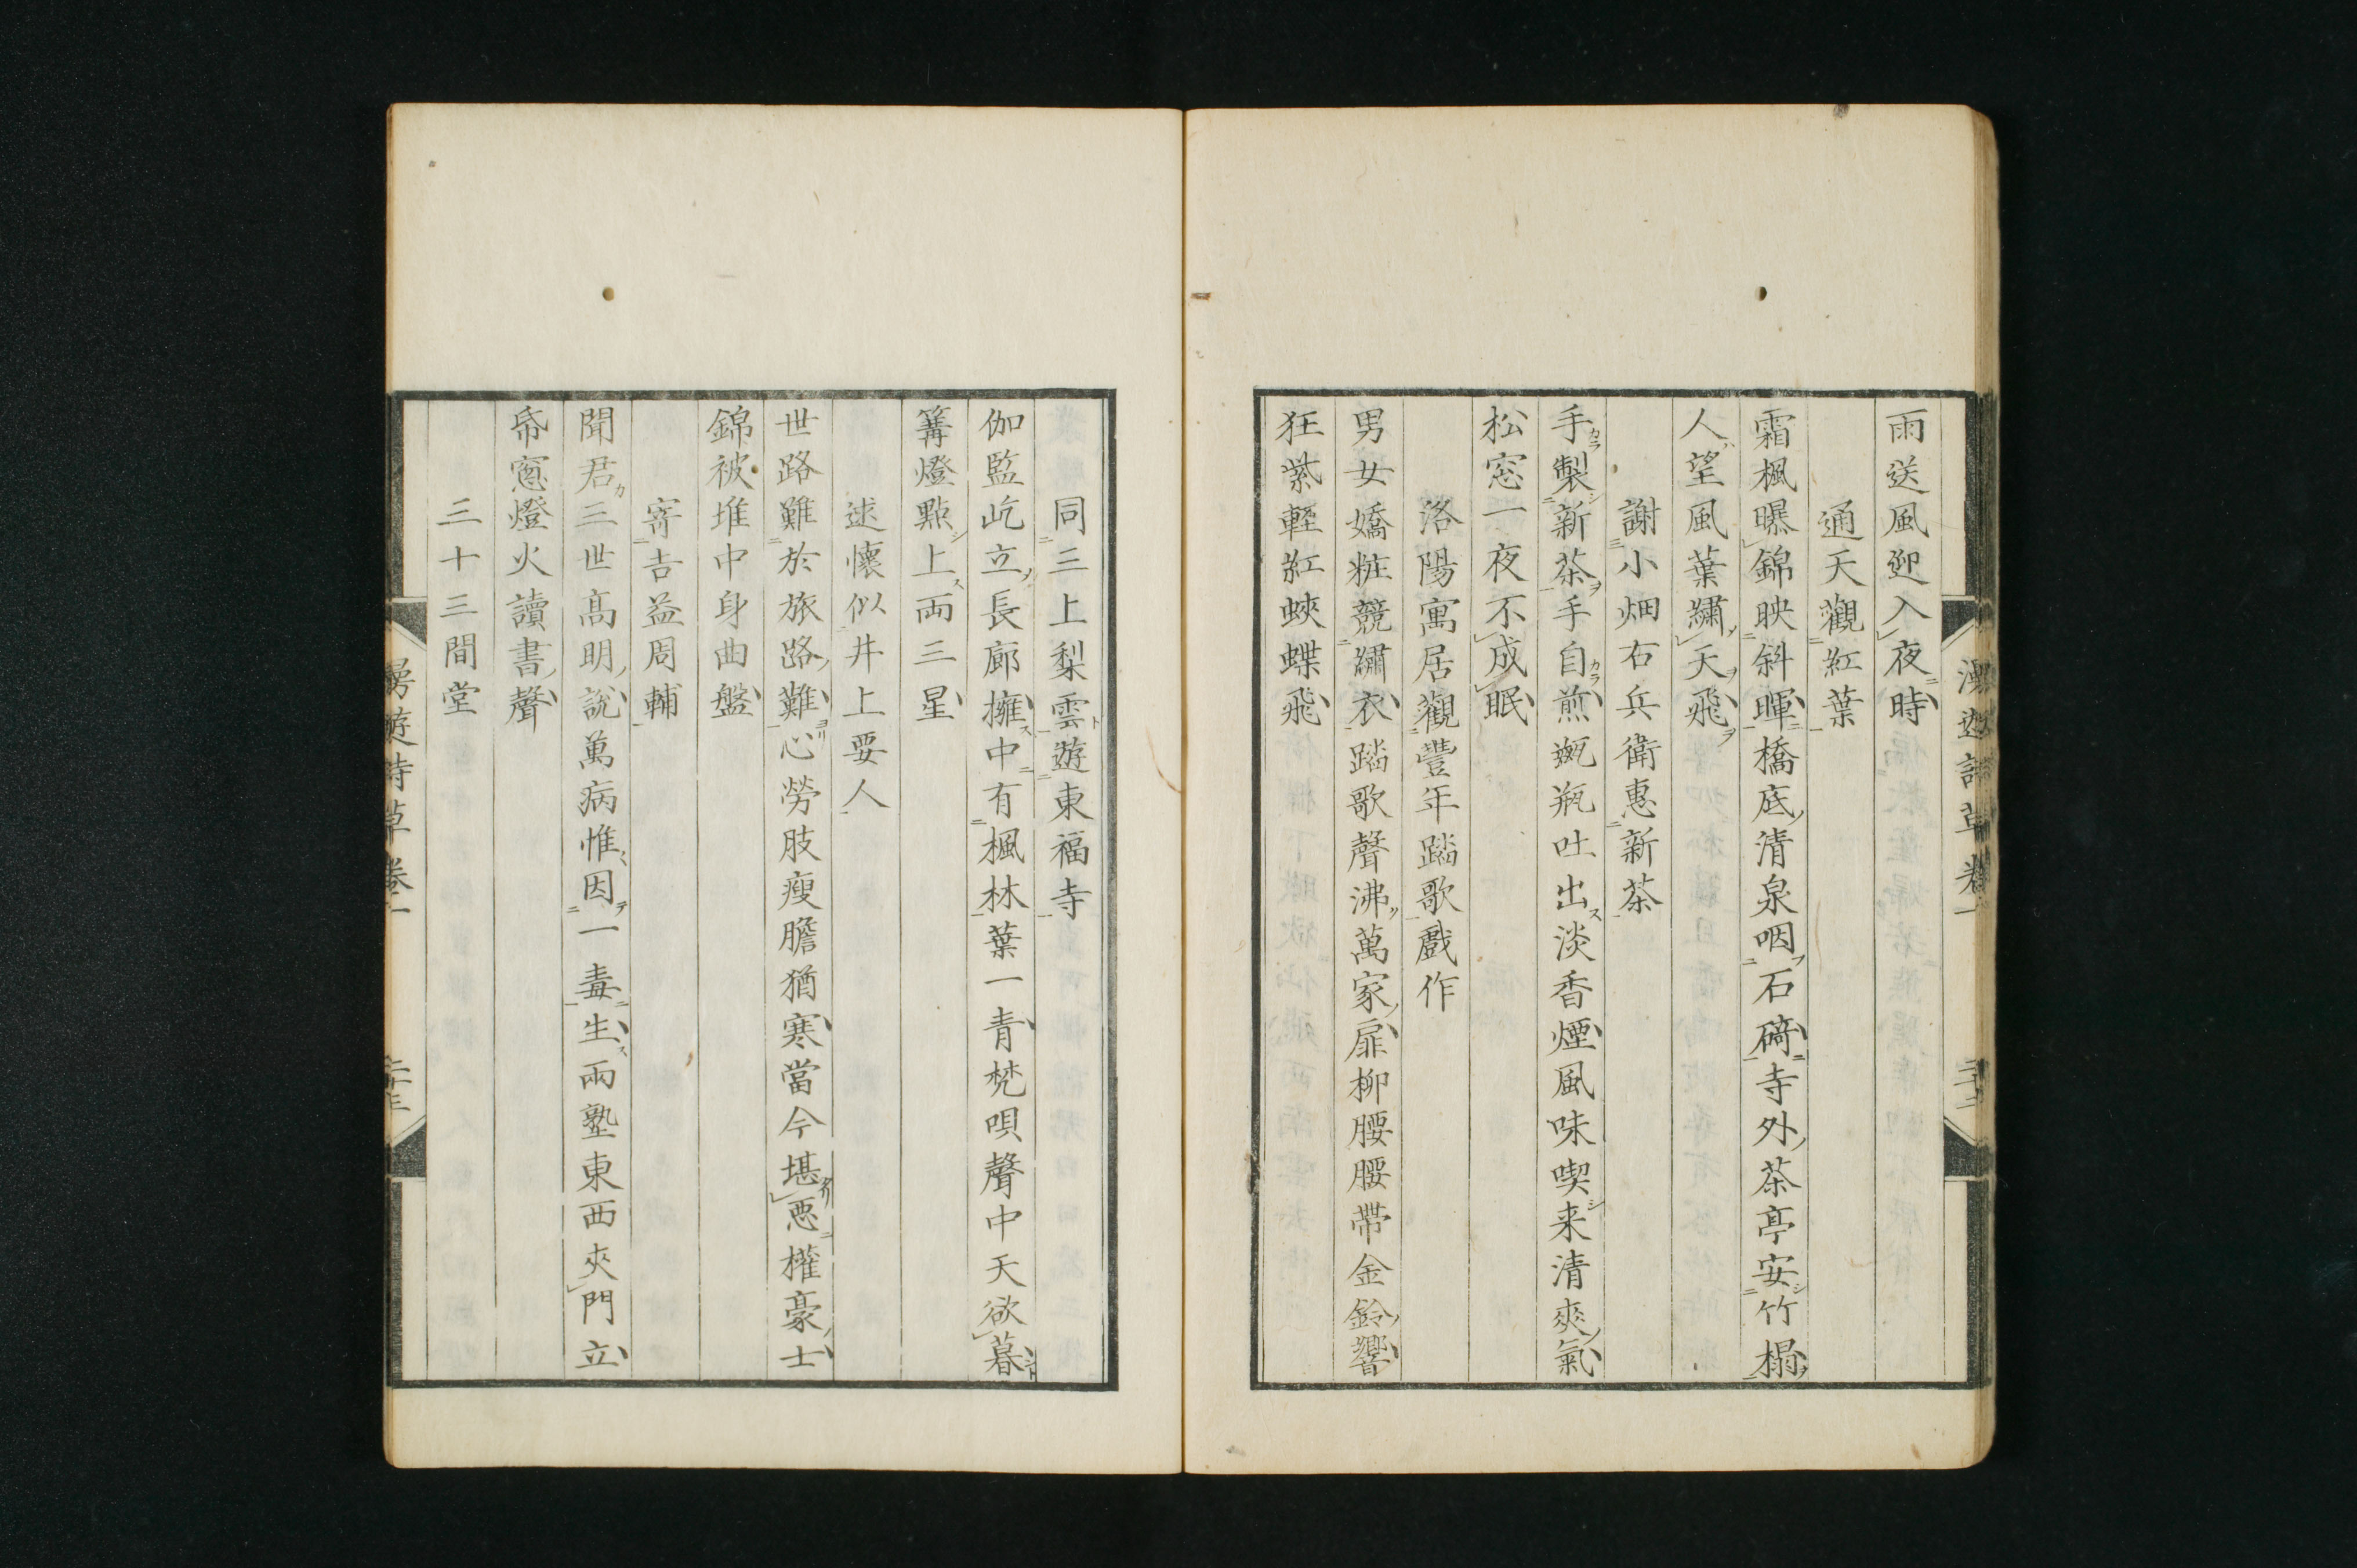 雨送風迎入夜時
通天觀紅葉
霜楓曝錦映斜暉橋底清泉咽石碕寺外茶亭安竹榻
人望風葉繡天飛
謝小畑右兵衛惠新茶
手製新茶手自煎甁瓶吐出淡香煙風味喫来清爽氣
松窓一夜不成眠
洛陽寓居觀豐年踏歌戲作
男女嬌粧競繡衣踏歌聲沸萬家扉柳腰腰帶金鈴響
狂紫輕紅蛺蝶飛
漫遊詩草卷一
二十二
同三上梨雲遊東福寺
伽監屹立長廊擁中有楓林葉一青梵唄聲中天欲暮
篝燈點上両三星
述懷似井上要人
世路難於旅路難心勞肢瘦膽猶寒當今堪惡權豪士
錦被堆中身曲盤
寄吉益周輔
聞君三世髙明說萬病惟因一毒生兩塾東西夾門立
帋窻燈火讀書聲
三十三間堂
漫遊詩草卷一
二十三